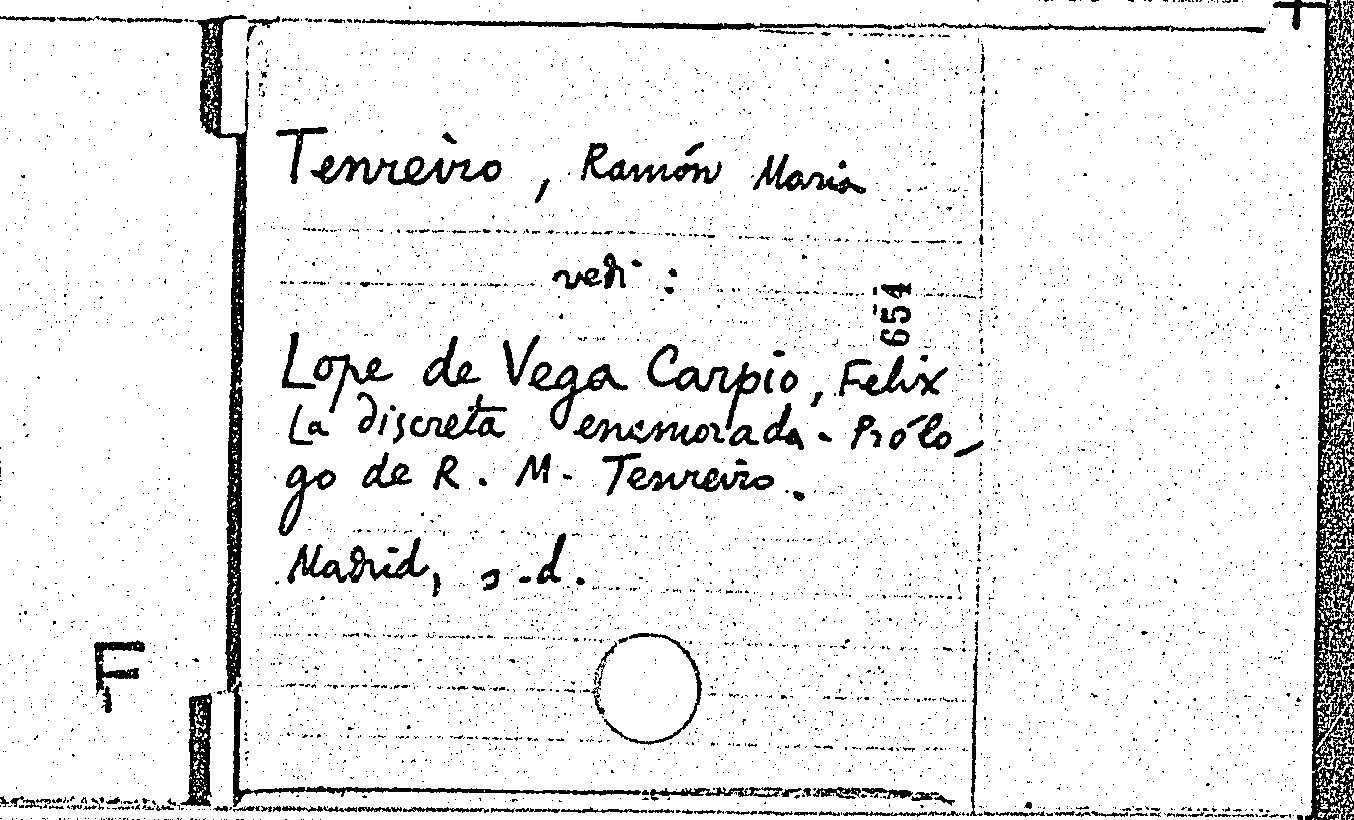 Tenreiro, Ramón Maria
vedi:
654
Lope de Vega Carpio, Felix
La discreta enamorada - Prólo-
go de R. M. Tenreiro.
Madrid, s.d.
F